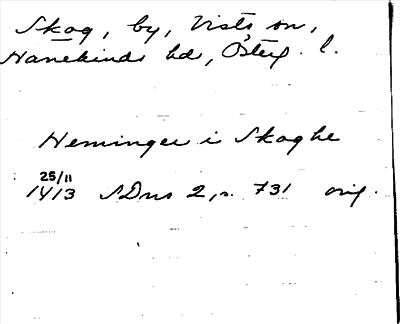 Skog, by, Vists sn,
Hanekinds hd, Östg. l.
Heminger i Skoghe
25/11
1413 SDns 2, s. 731 orig.